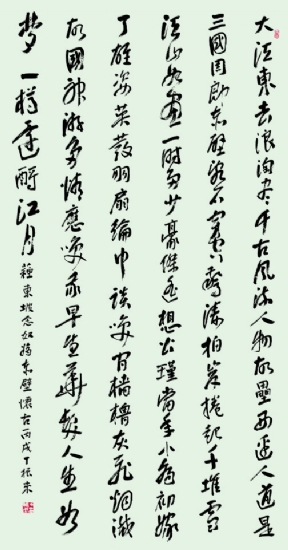 大江東去浪淘盡千古風流人物故壘西邊人道是
三國周郎赤壁亂石穿空驚濤拍岸捲起千堆雪
江山如畫一時多少豪傑遙想公瑾當年小喬初嫁
了雄姿英發羽扇綸巾談笑間檣櫓灰飛烟滅
故國神遊多情應笑我早生華髮人生如
夢一樽還酹江月
蘇東坡念奴嬌赤壁懷古丙戌丁振來